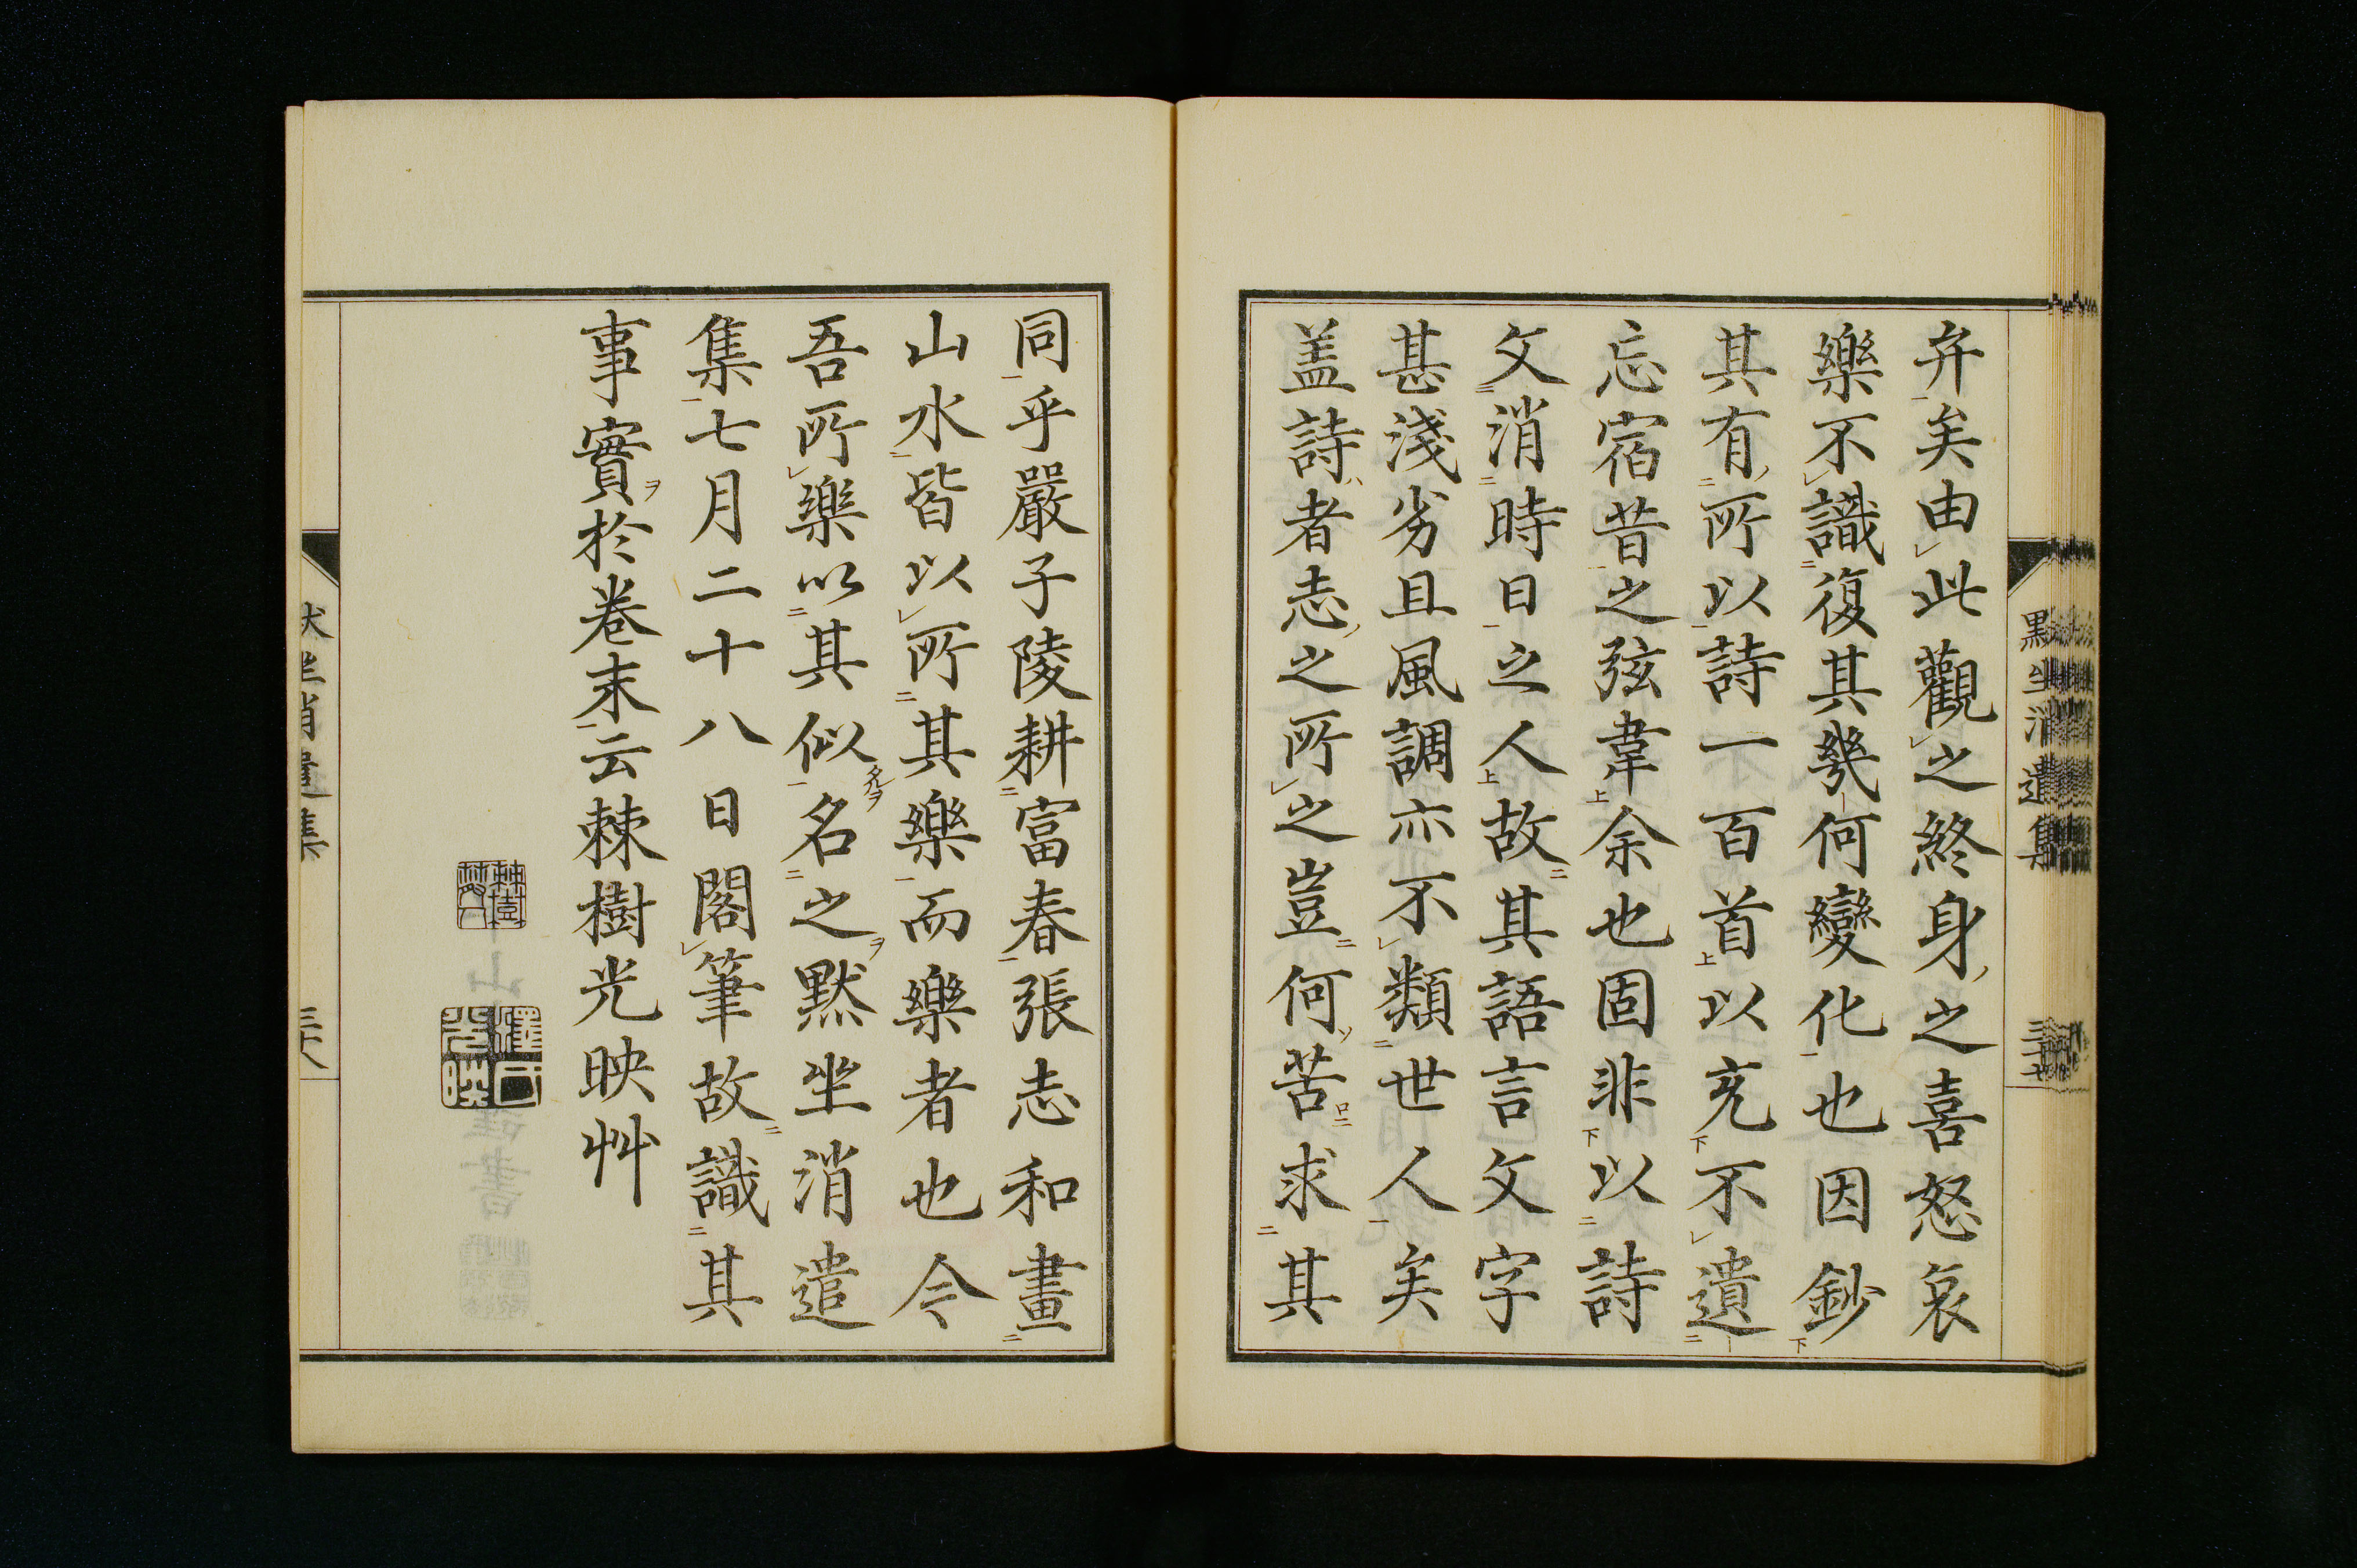 弃矣由此觀之終身之喜怒哀
樂不識復其幾何變化也因鈔
其有所以詩一百首以充不遺
忘宿昔之弦韋余也固非以詩
文消時日之人故其語言文字
甚淺劣且風調亦不類世人矣
盖詩者志之所之豈何苦求其
同乎嚴子陵耕富春張志和畫
山水皆以所其樂而樂者也今
吾所樂以其似名之默坐消遣
集七月二十八日閣筆故識其
事實於卷末云棘樹光映艸
默坐消遣集